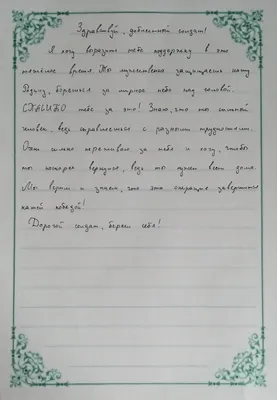 Здравствуй, доблестный солдат!
Я хочу выразить тебе поддержку в это
тяжелое время. Ты мужественно защищаешь нашу
Родину, борешься за мирное небо над головой.
СПАСИБО тебе за это! Знаю, что ты сильный
человек, ведь справляешься с разными трудностями.
Очень сильно переживаю за тебя и хочу, чтобы
ты поскорее вернулся, ведь ты нужен всем дома.
Мы верим и знаем, что эта операция завершится
нашей победой!
Дорогой солдат, береги себя!